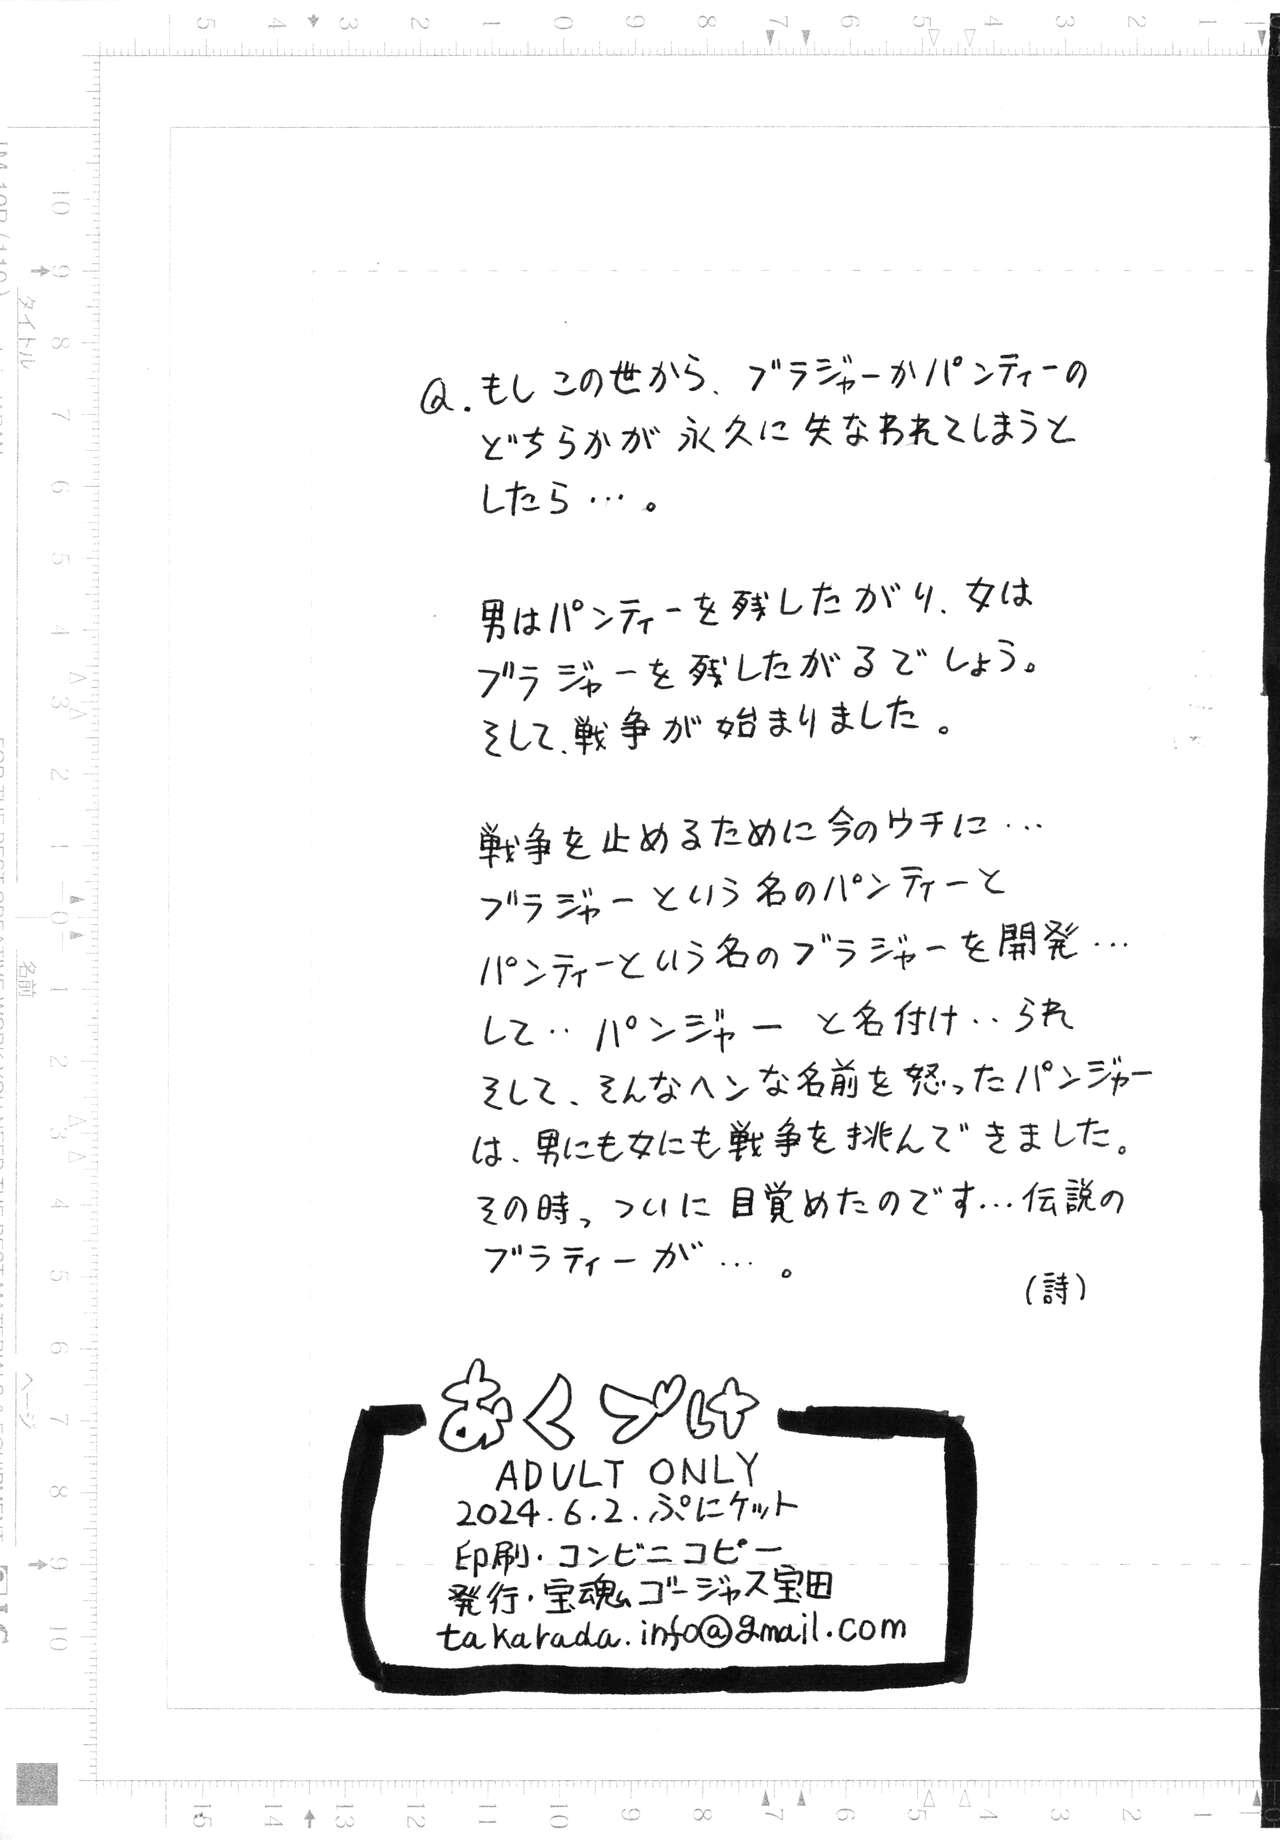 Q.もしこの世から、ブラジャーかパンティーの
どちらかが永久に失なわれてしまうと
したら…。
男はパンティーを残したがり、女は
ブラジャーを残したがるでしょう。
そして、戦争が始まりました。
戦争を止めるために今のウチに…
ブラジャーという名のパンティーと
パンティーという名のブラジャーを開発…
して‥パンジャーと名付け‥られ
そして、そんなヘンな名前を怒ったパンジャー
は、男にも女にも戦争を挑んできました。
その時っついに目覚めたのです…伝説の
ブラティーが…。
(詩)
おくづけ
ADULT ONLY
2024.6.2.ぷにケット
印刷・コンビニコピー
発行・宝魂ゴージャス宝田
takarada.info@gmail.com
タイトル
名前
ページ